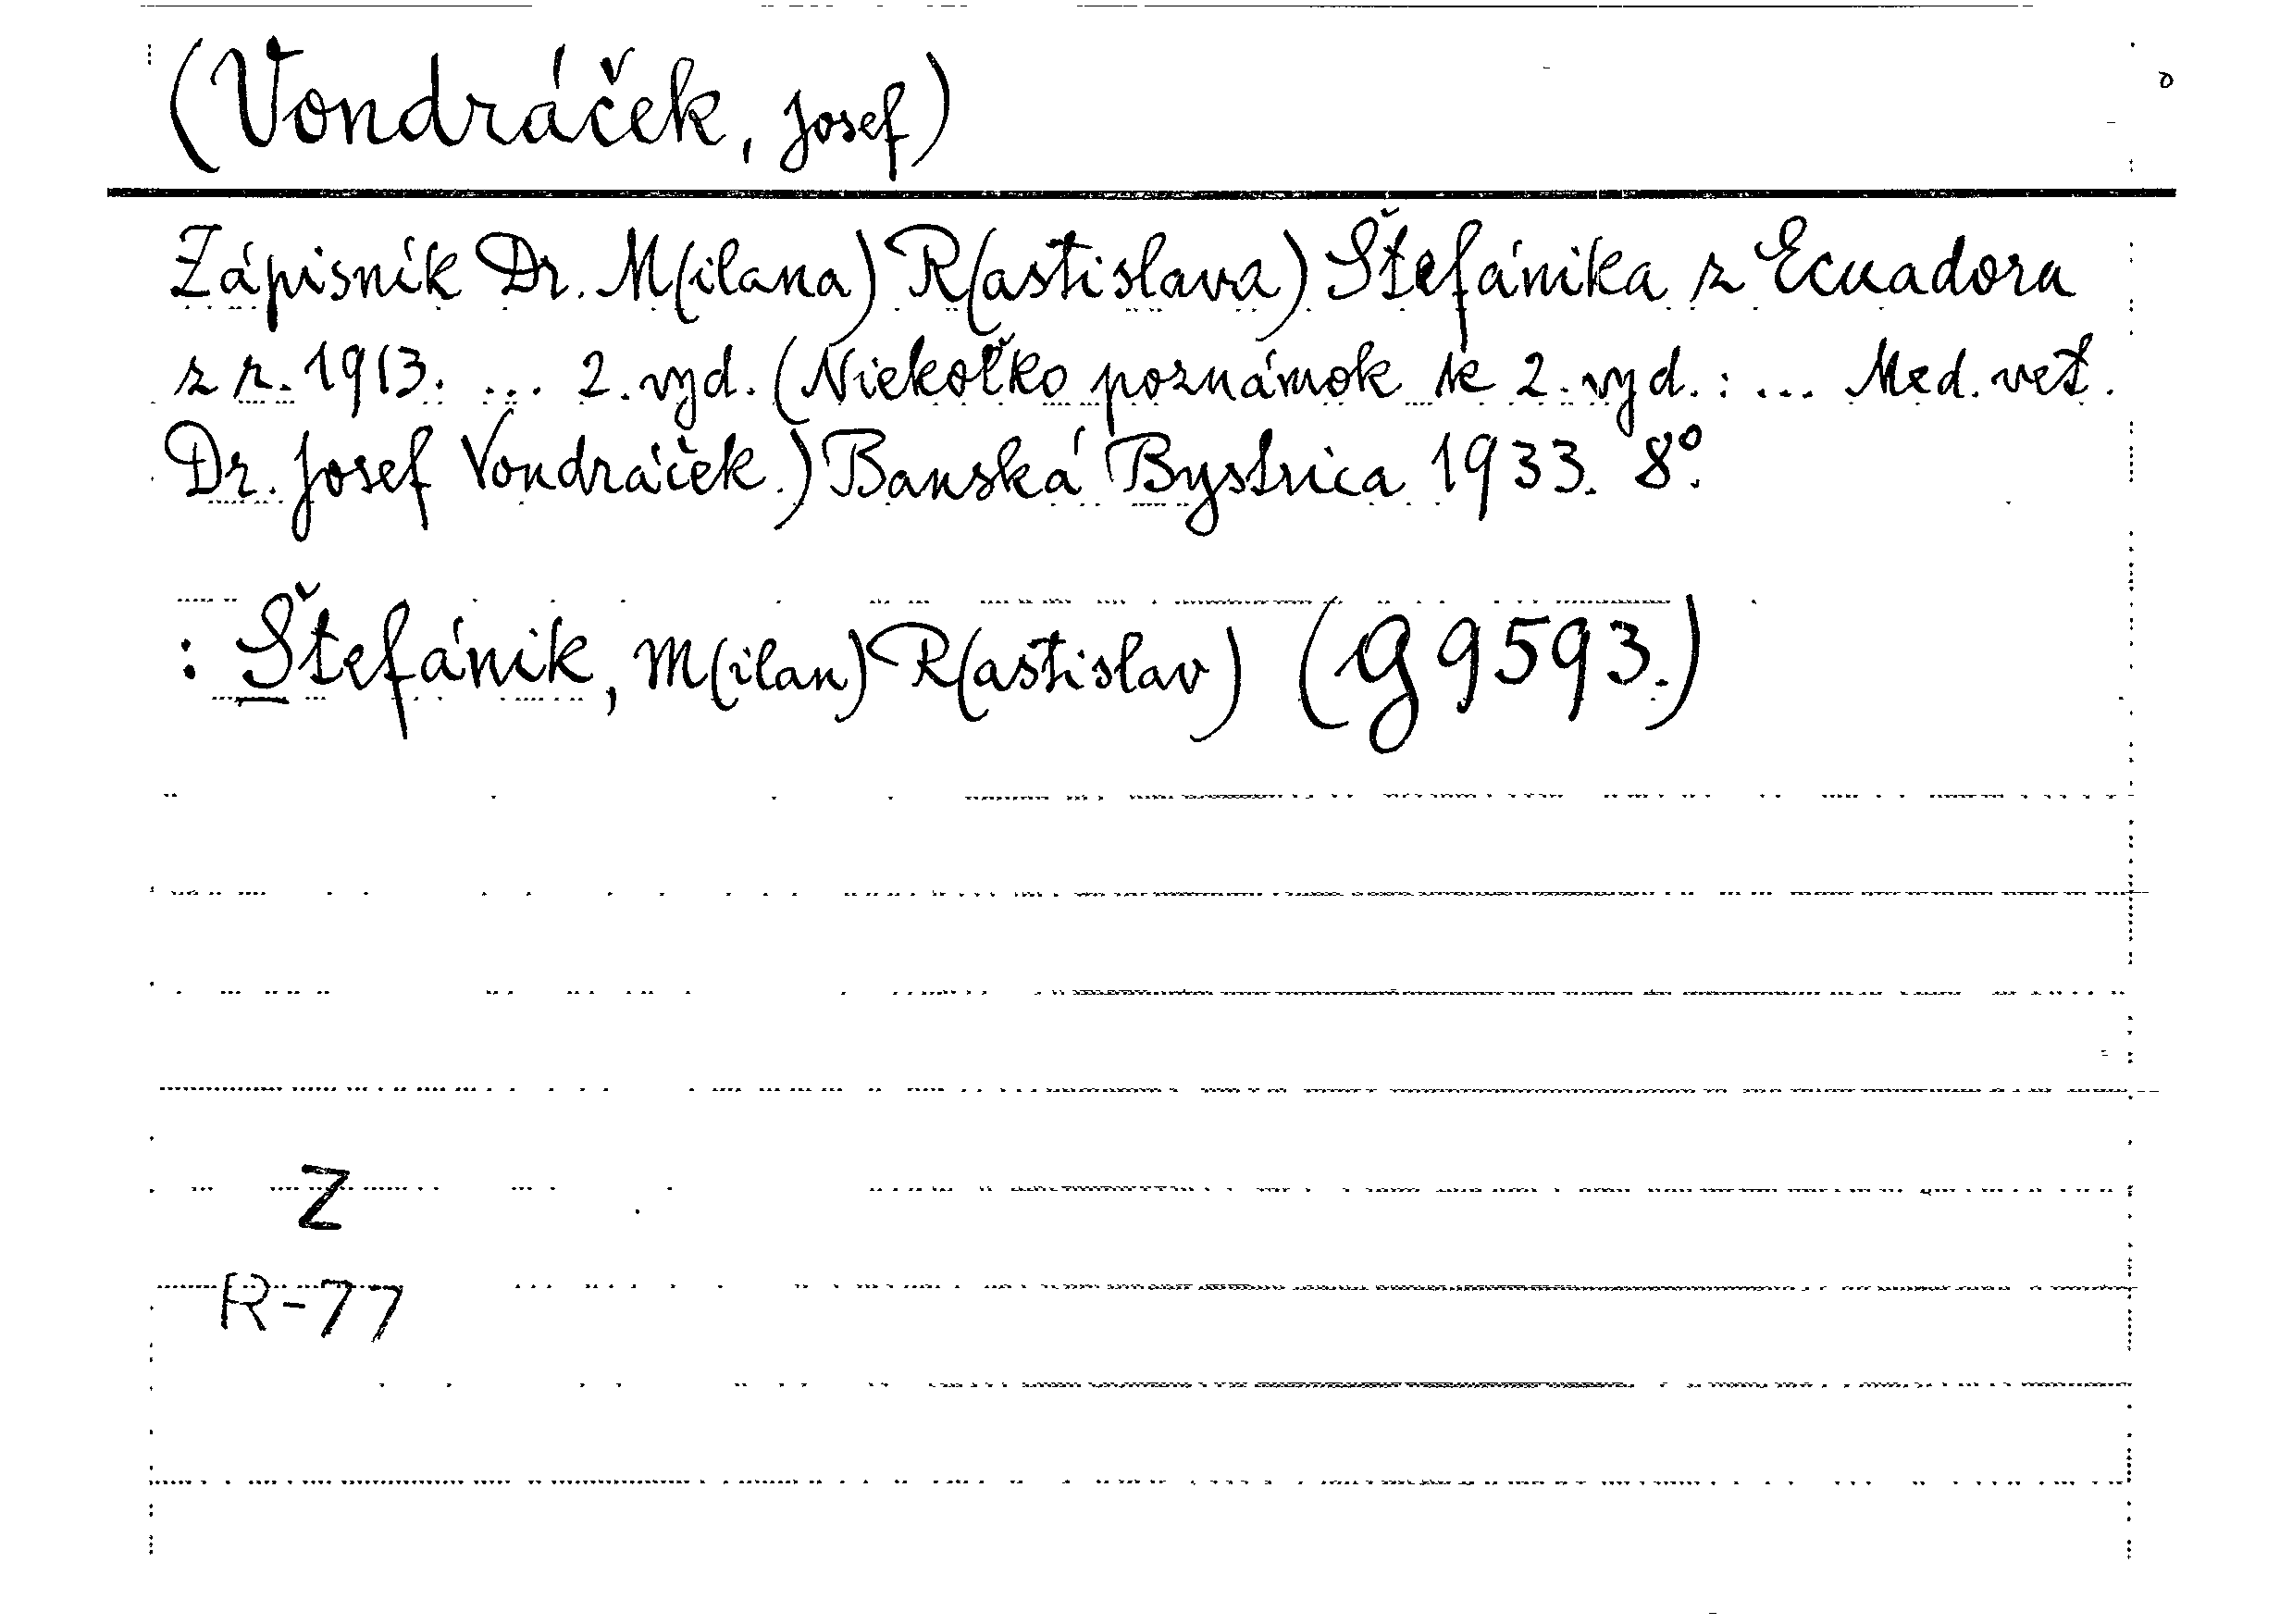 (Vondráček, Josef)
Zápisník Dr. M(ilana) R(astislava) Štefánika z Ecuadora
z r. 1913. ... 2. vyd. (Niekoľko poznámok k 2. vyd.: ... Med. vet.
Dr. Josef Vondráček.) Banská Bystrica 1933. 8°.
: Štefánik, M(ilan) R(astislav) (G 9593.)
Z
R-77